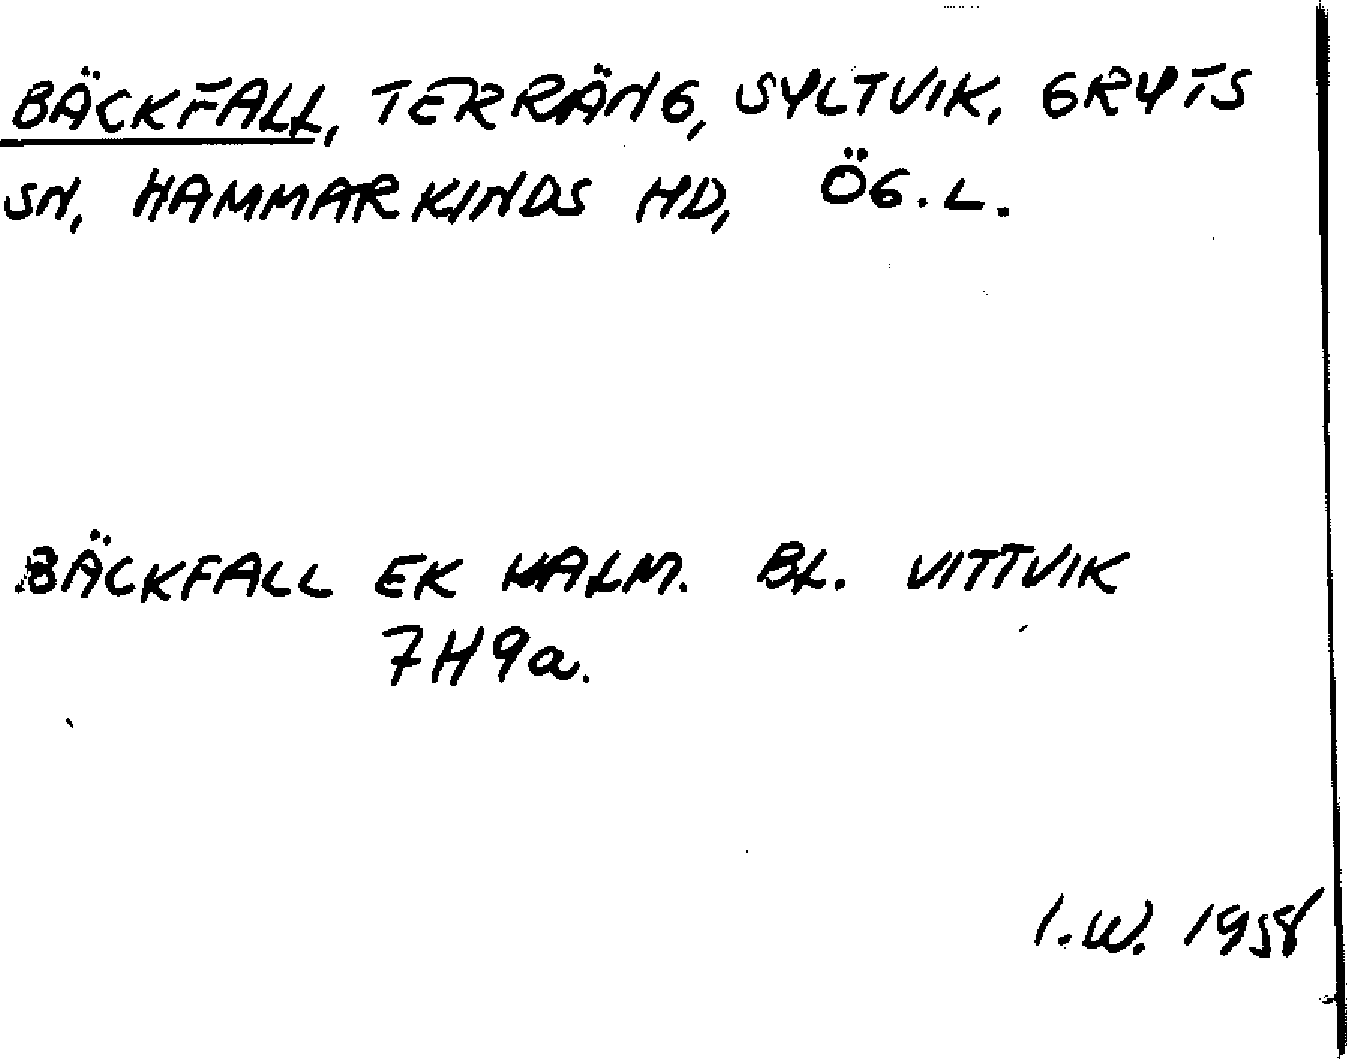 BÄCKFALL, TERRÄNG, SYLTVIK, GRYTS
SN, HAMMARKINDS HD, ÖG.L.
BÄCKFALL EK HALM. BL. VITTVIK
7H9a.
I.W. 1958